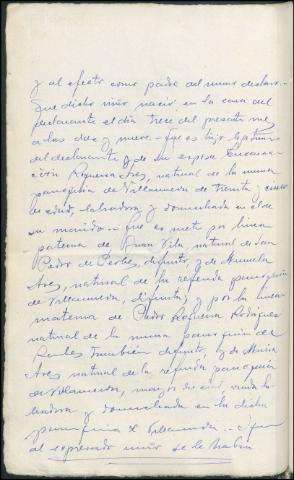 y al efecto como padre del mismo declaro.-
Que dicho niño nació en la casa del
declarante el día trece del presente mes
a las diez y nueve.- Que es hijo legítimo
del declarante y de su esposa Encarna-
ción Requena Ares, natural de la misma
parroquia de Villamerón de treinta y
de edad, labradora y domiciliada en el de
su marido.- Que es nieto por línea
paterna de Juan Vila, natural de San
Pedro de, difunto, y de Manuela
Ares, natural de la referida parroquia
de Villamerón, difunta; y por la línea
materna de Pedro Requena Rodríguez
natural de la misma parroquia de
también difunto, y de María
Ares natural de la referida parroquia
de Villamerón, mayor de edad, viuda la-
bradora y domiciliada en la dicha
parroquia de Villamerón.- Y que
al expresado niño se le había